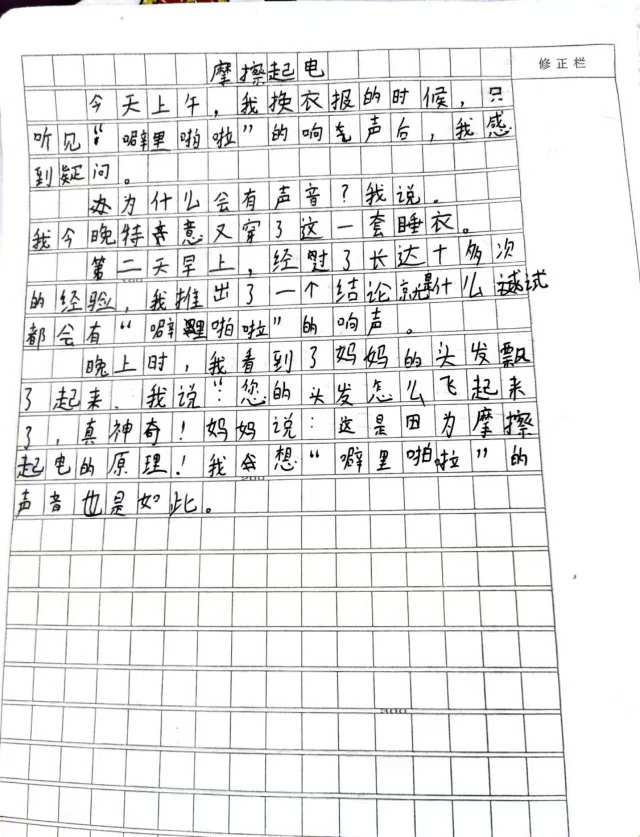 修正栏
摩擦起电
今天上午，我换衣报的时候，只
听见“噼里啪啦”的响声后，我感
到疑问。
为什么会有声音？我说。
我今晚特意又穿了这一套睡衣。
第二天早上，经过了长达十多次
的经验，我推出了一个结论就是什么试
都会有“噼里啪啦”的响声。
晚上时，我看到了妈妈的头发飘
了起来、我说：“您的头发怎么飞起来
了，真神奇！妈妈说：这是因为摩擦
起电的原理！我会想“噼里啪啦”的
声音也是如此。
200
300